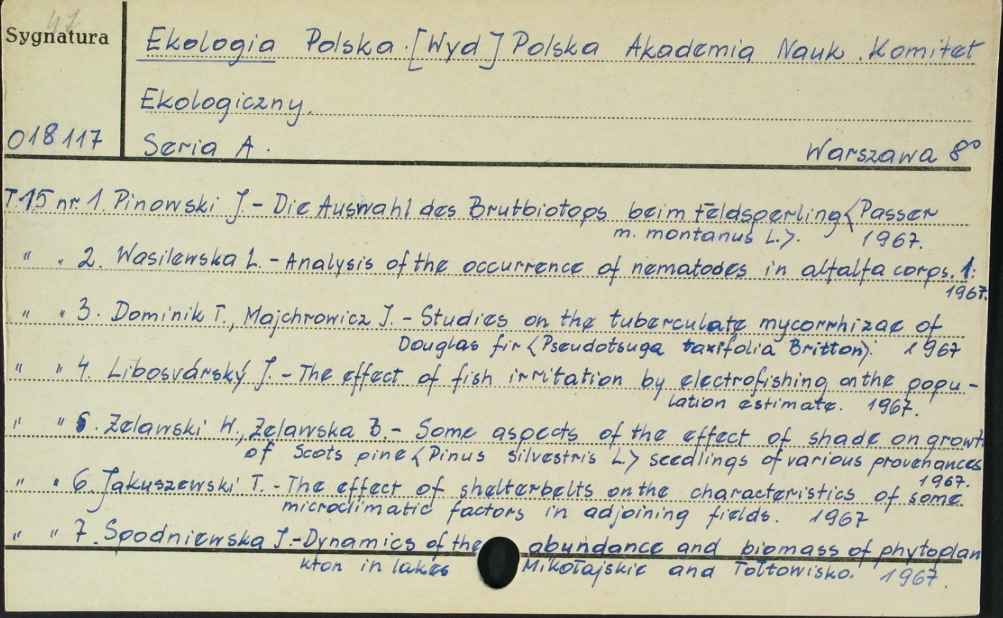 47
Sygnatura
Ekologia Polska. [Wyd] Polska Akademia Nauk. Komitet
Ekologiczny.
018117
Seria A.
Warszawa 8°
T.15 nr. 1. Pinowski J. - Die Auswahl des Brutbiotops beim Feldsperling <Passer
m. montanus L.>. 1967.
" " 2. Wasilewska L. - Analysis of the occurrence of nematodes in alfalfa corps. 1:
1967.
" " 3. Dominik T., Majchrowicz J. - Studies on the tuberculate mycorrhizae of
Douglas fir <Pseudotsuga taxifolia Britton>. 1967
" " 4. Libosvárský J. - The effect of fish irritation by electrofishing on the popu-
lation estimate. 1967.
" " 5. Zelawski W., Zelawska B. - Some aspects of the effect of shade on growth
of Scots pine <Pinus silvestris L> seedlings of various provenances
1967.
" " 6. Jakuszewski T. - The effect of shelterbelts on the characteristics of some
microclimatic factors in adjoining fields. 1967
" " 7. Spodniewska J. - Dynamics of the abundance and biomass of phytoplan
kton in lakes Mikołajskie and Tołtowisko. 1967.